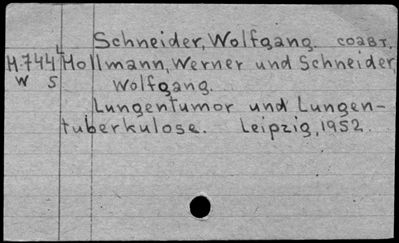 Schneider, Wolfgang. соавт.
Mollmann, Werner und Schneider,
W S Wolfgang.
Lungentumor und Lungen-
tuberkulose. Leipzig, 1952.